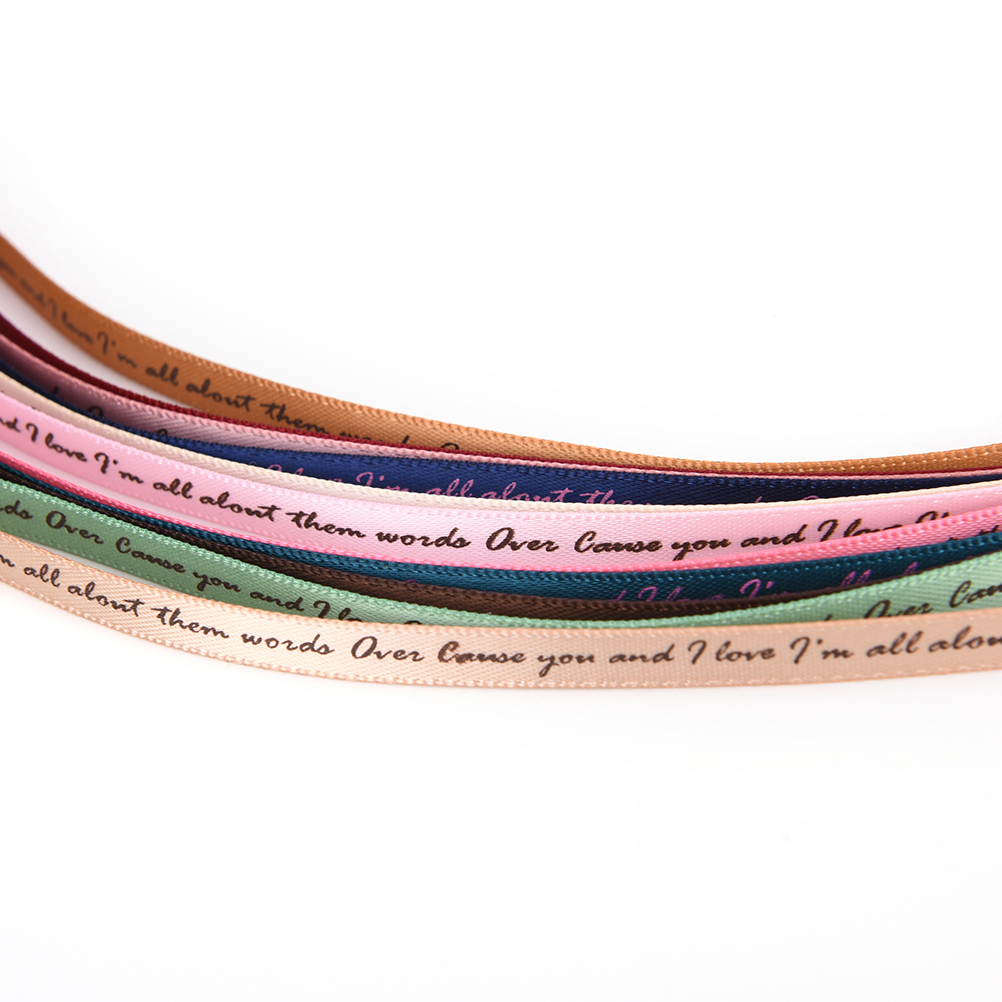 and I love I'm all about them words
I'm all about the
and I love I'm all about them words Over Cause you and I love I'm
and I love I'm all
words Over Cause you and I love
Over Cause
I'm all about them words Over Cause you and I love I'm all about